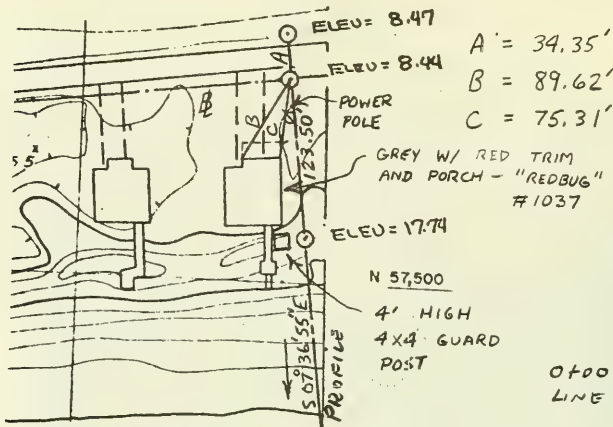 ELEV = 8.47
A = 34.35'
A
ELEV = 8.44
B = 89.62'
℄
B
C
POWER
POLE
C = 75.31'
123.50'
GREY W/ RED TRIM
AND PORCH - "REDBUG"
#1037
55
ELEV = 17.74
N 57,500
4' HIGH
4X4 GUARD
POST
S 07° 36' 55" E
PROFILE
0+00
LINE